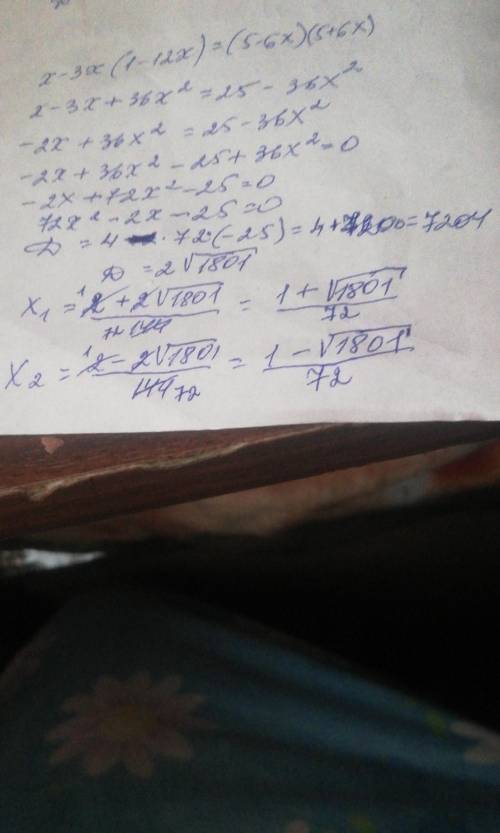 x-3x(1-12x)=(5-6x)(5+6x)
x-3x+36x²=25-36x²
-2x+36x²=25-36x²
-2x+36x²-25+36x²=0
-2x+72x²-25=0
72x²-2x-25=0
D=4 · 72(-25)=4+7200=7204
D=2√1801
x₁ = (2+2√1801)/144 = (1+√1801)/72
x₂ = (2-2√1801)/144 = (1-√1801)/72